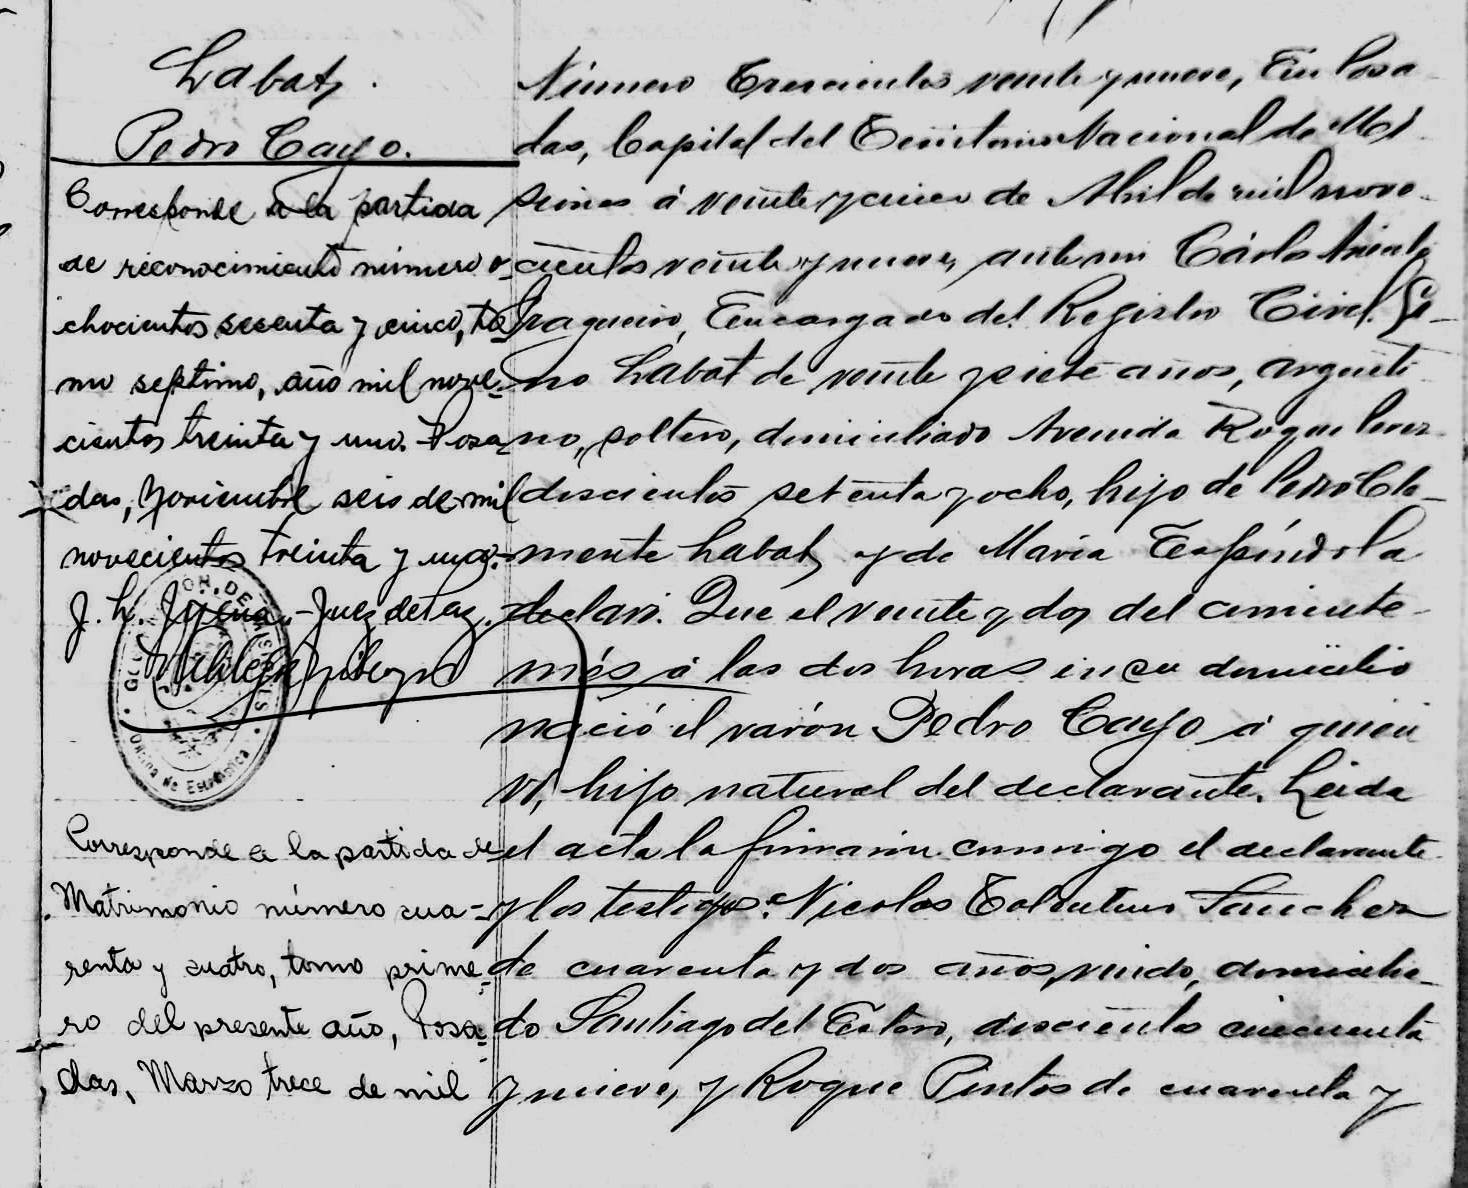 Labat,
Pedro Cayo.
Corresponde a la partida
de reconocimiento número o-
chocientos sesenta y cinco, to-
mo septimo, año mil nove-
cientos treinta y uno. Posa-
das, Noviembre seis de mil
novecientos treinta y uno.-
J. L. - Juez de Paz.-
Oficina de Estadística
Corresponde a la partida de
Matrimonio número cua-
renta y cuatro, tomo prime-
ro del presente año, Posa-
das, Marzo trece de mil
Número Trescientos veinte y nueve, En Posa
das, Capital del Territorio Nacional de Mi
siones á veinte y cinco de Abril de mil nove-
cientos veinte y nueve, ante mi Cárlos
Fragueiro, Encargado del Registro Civil.
no Labat de veinte y siete años, argenti
no, soltero, domiciliado Avenida Roque Perez
doscientos setenta y ocho, hijo de Pedro Cle-
mente Labat, y de María Espíndola
declaró. Que el veinte y dos del corriente
més, á las dos horas en su domicilio
nació el varón Pedro Cayo á quien
ví, hijo natural del declarante. Leida
el acta la firmaron conmigo el declarante
y los testigos: Nicolas Tolentino Sanchez
de cuarenta y dos años, viudo, domicilia-
do Santiago del Estero, doscientos cincuenta
y nueve, y Roque Pintos de cuarenta y